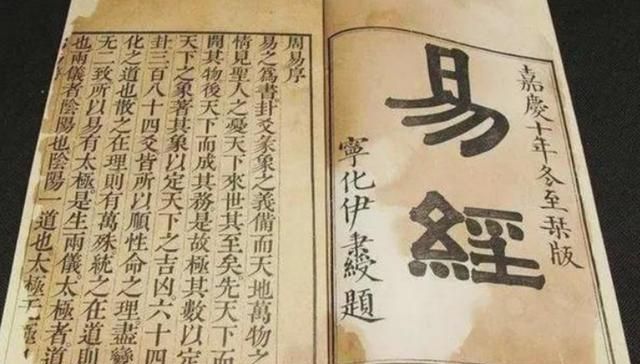 嘉慶十年冬至栞版
易經
寧化伊秉綬題
周易序
易之爲書卦爻彖象之義備而天地萬物之
情見聖人之憂天下來世其至矣。先天下而
開其物後天下而成其務是故極其數以定
天下之象著其象以定天下之吉凶。六十四
卦三百八十四爻皆所以順性命之理盡變
化之道也散之在理則有萬殊。統之在道則
無二致所以易有太極。是生兩儀。太極者道
也兩儀者陰陽也陰陽一道也太極无極